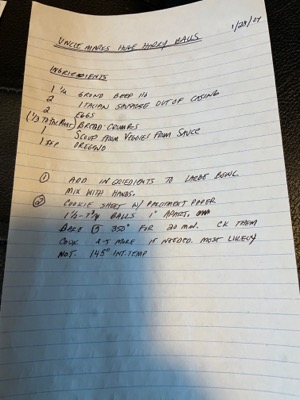 1/28/24
UNCLE MARKS HUGE HAIRY BALLS
INGRIEDIENTS
1 1/4 GROND BEEF lb
2 ITALIAN SAUSAGE OUT OF CASING
2 EGGS
(1/3 TOTAL MEAT) BREAD CRUMBS
1 SCOOP FROM VEGGIES FROM SAUCE
1 TSP OREGANO
① ADD INGRIEDIENTS TO LARGE BOWL
MIX WITH HANDS.
② COOKIE SHEET W/ PARCHMENT PAPER
BALLS 1" APART.
BAKE @ 350° FOR 20 min. CK THEM
COOK MORE IF NEEDED. MOST LIKELY
NOT. 145° INT. TEMP